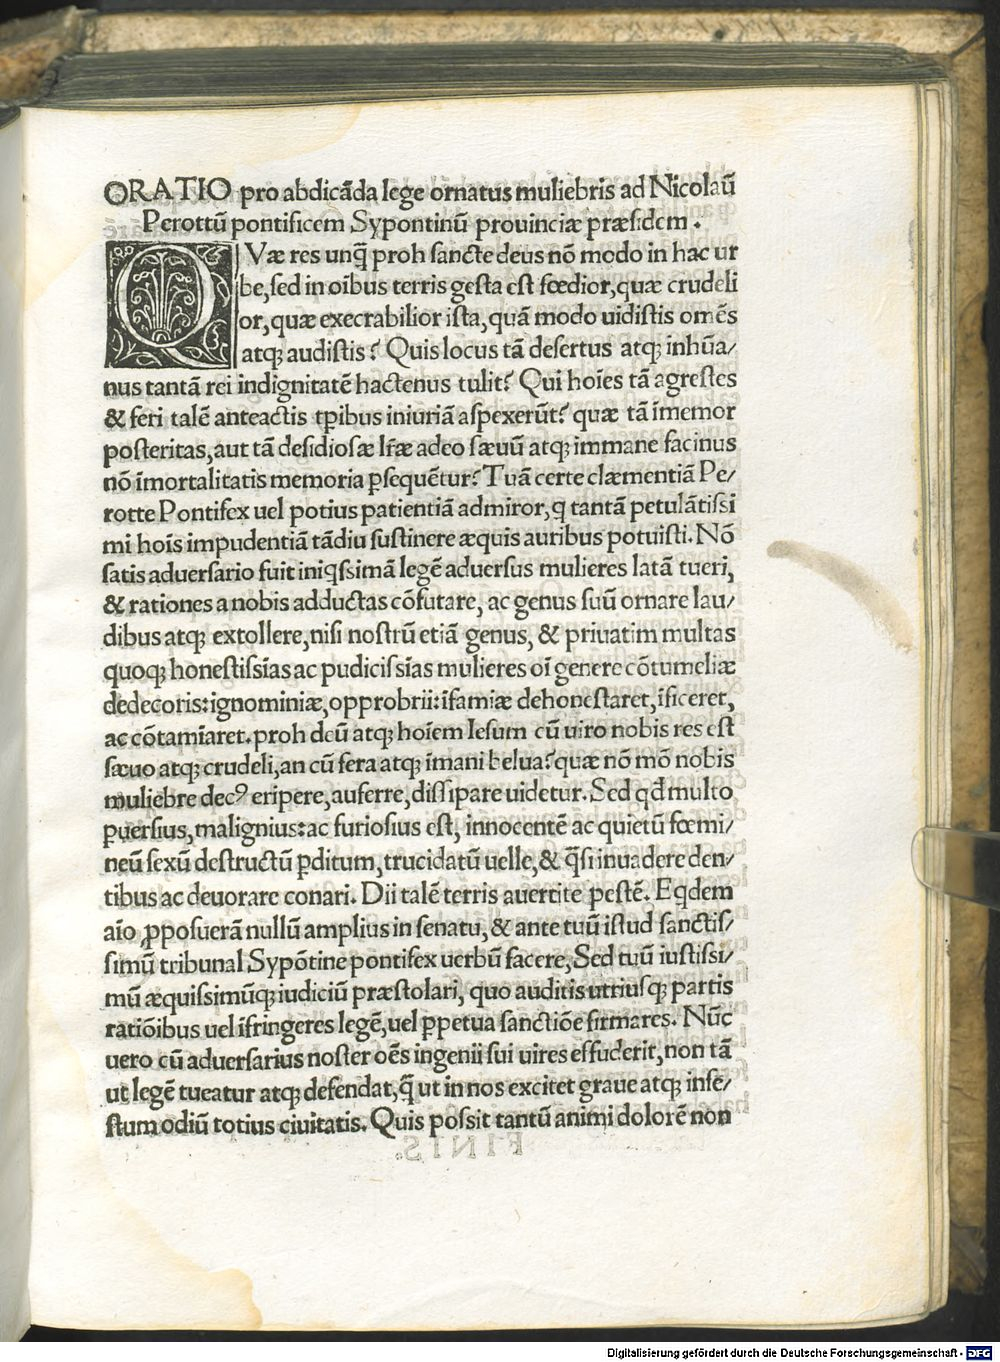 ORATIO pro abdicãda lege ornatus muliebris ad Nicolaũ
Perottũ pontificem Sypontinũ prouinciæ præsidem.
QVæ res unq̃ proh sancte deus nõ modo in hac ur
be, sed in oĩbus terris gesta est fœdior, quæ crudeli
or, quæ execrabilior ista, quã modo uidistis omẽs
atq; audistis? Quis locus tã desertus atq; inhũa/
nus tantã rei indignitatẽ hactenus tulit? Qui hoĩes tã agrestes
& feri talẽ anteactis tp̃ibus iniuriã aspexerũt? quæ tã ĩmemor
posteritas, aut tã desidiosæ lr̃æ adeo sæuũ atq; immane facinus
nõ ĩmortalitatis memoria ꝑsequẽtur? Tuã certe clæmentiã Pe/
rotte Pontifex uel potius patientiã admiror, q̃ tantã petulãtissi
mi hoĩs impudentiã tãdiu sustinere æquis auribus potuisti. Nõ
satis aduersario fuit iniq̃ssimã legẽ aduersus mulieres latã tueri,
& rationes a nobis adductas cõfutare, ac genus suũ ornare lau/
dibus atq; extollere, nisi nostrũ etiã genus, & priuatim multas
quoq; honestissĩas ac pudicissĩas mulieres oĩ genere cõtumeliæ
dedecoris: ignominiæ, opprobrii: ĩfamiæ dehonestaret, ĩficeret,
ac cõtamĩaret. proh deũ atq; hoĩem Iesum cũ uiro nobis res est
sæuo atq; crudeli, an cũ fera atq; ĩmani belua? quæ nõ mõ nobis
muliebre decꝰ eripere, auferre, dissipare uidetur. Sed qđ multo
ꝑuersius, malignius: ac furiosius est, innocentẽ ac quietũ fœmi/
neũ sexũ destructũ ꝑditum, trucidatũ uelle, & q̃si inuadere den/
tibus ac deuorare conari. Dii talẽ terris auertite pestẽ. Eq̃dem
aĩo ꝓposuerã nullũ amplius in senatu, & ante tuũ istud sanctis/
simũ tribunal Sypõtine pontifex uerbũ facere, Sed tuũ iustissi/
mũ æquissimũq; iudiciũ præstolari, quo auditis utriusq; partis
ratiõibus uel ĩfringeres legẽ, uel ꝑpetua sanctiõe firmares. Nũc
uero cũ aduersarius noster oẽs ingenii sui uires effuderit, non tã
ut legẽ tueatur atq; defendat, q̃ ut in nos excitet graue atq; infe/
stum odiũ totius ciuitatis. Quis possit tantũ animi dolorẽ non
Digitalisierung gefördert durch die Deutsche Forschungsgemeinschaft - DFG